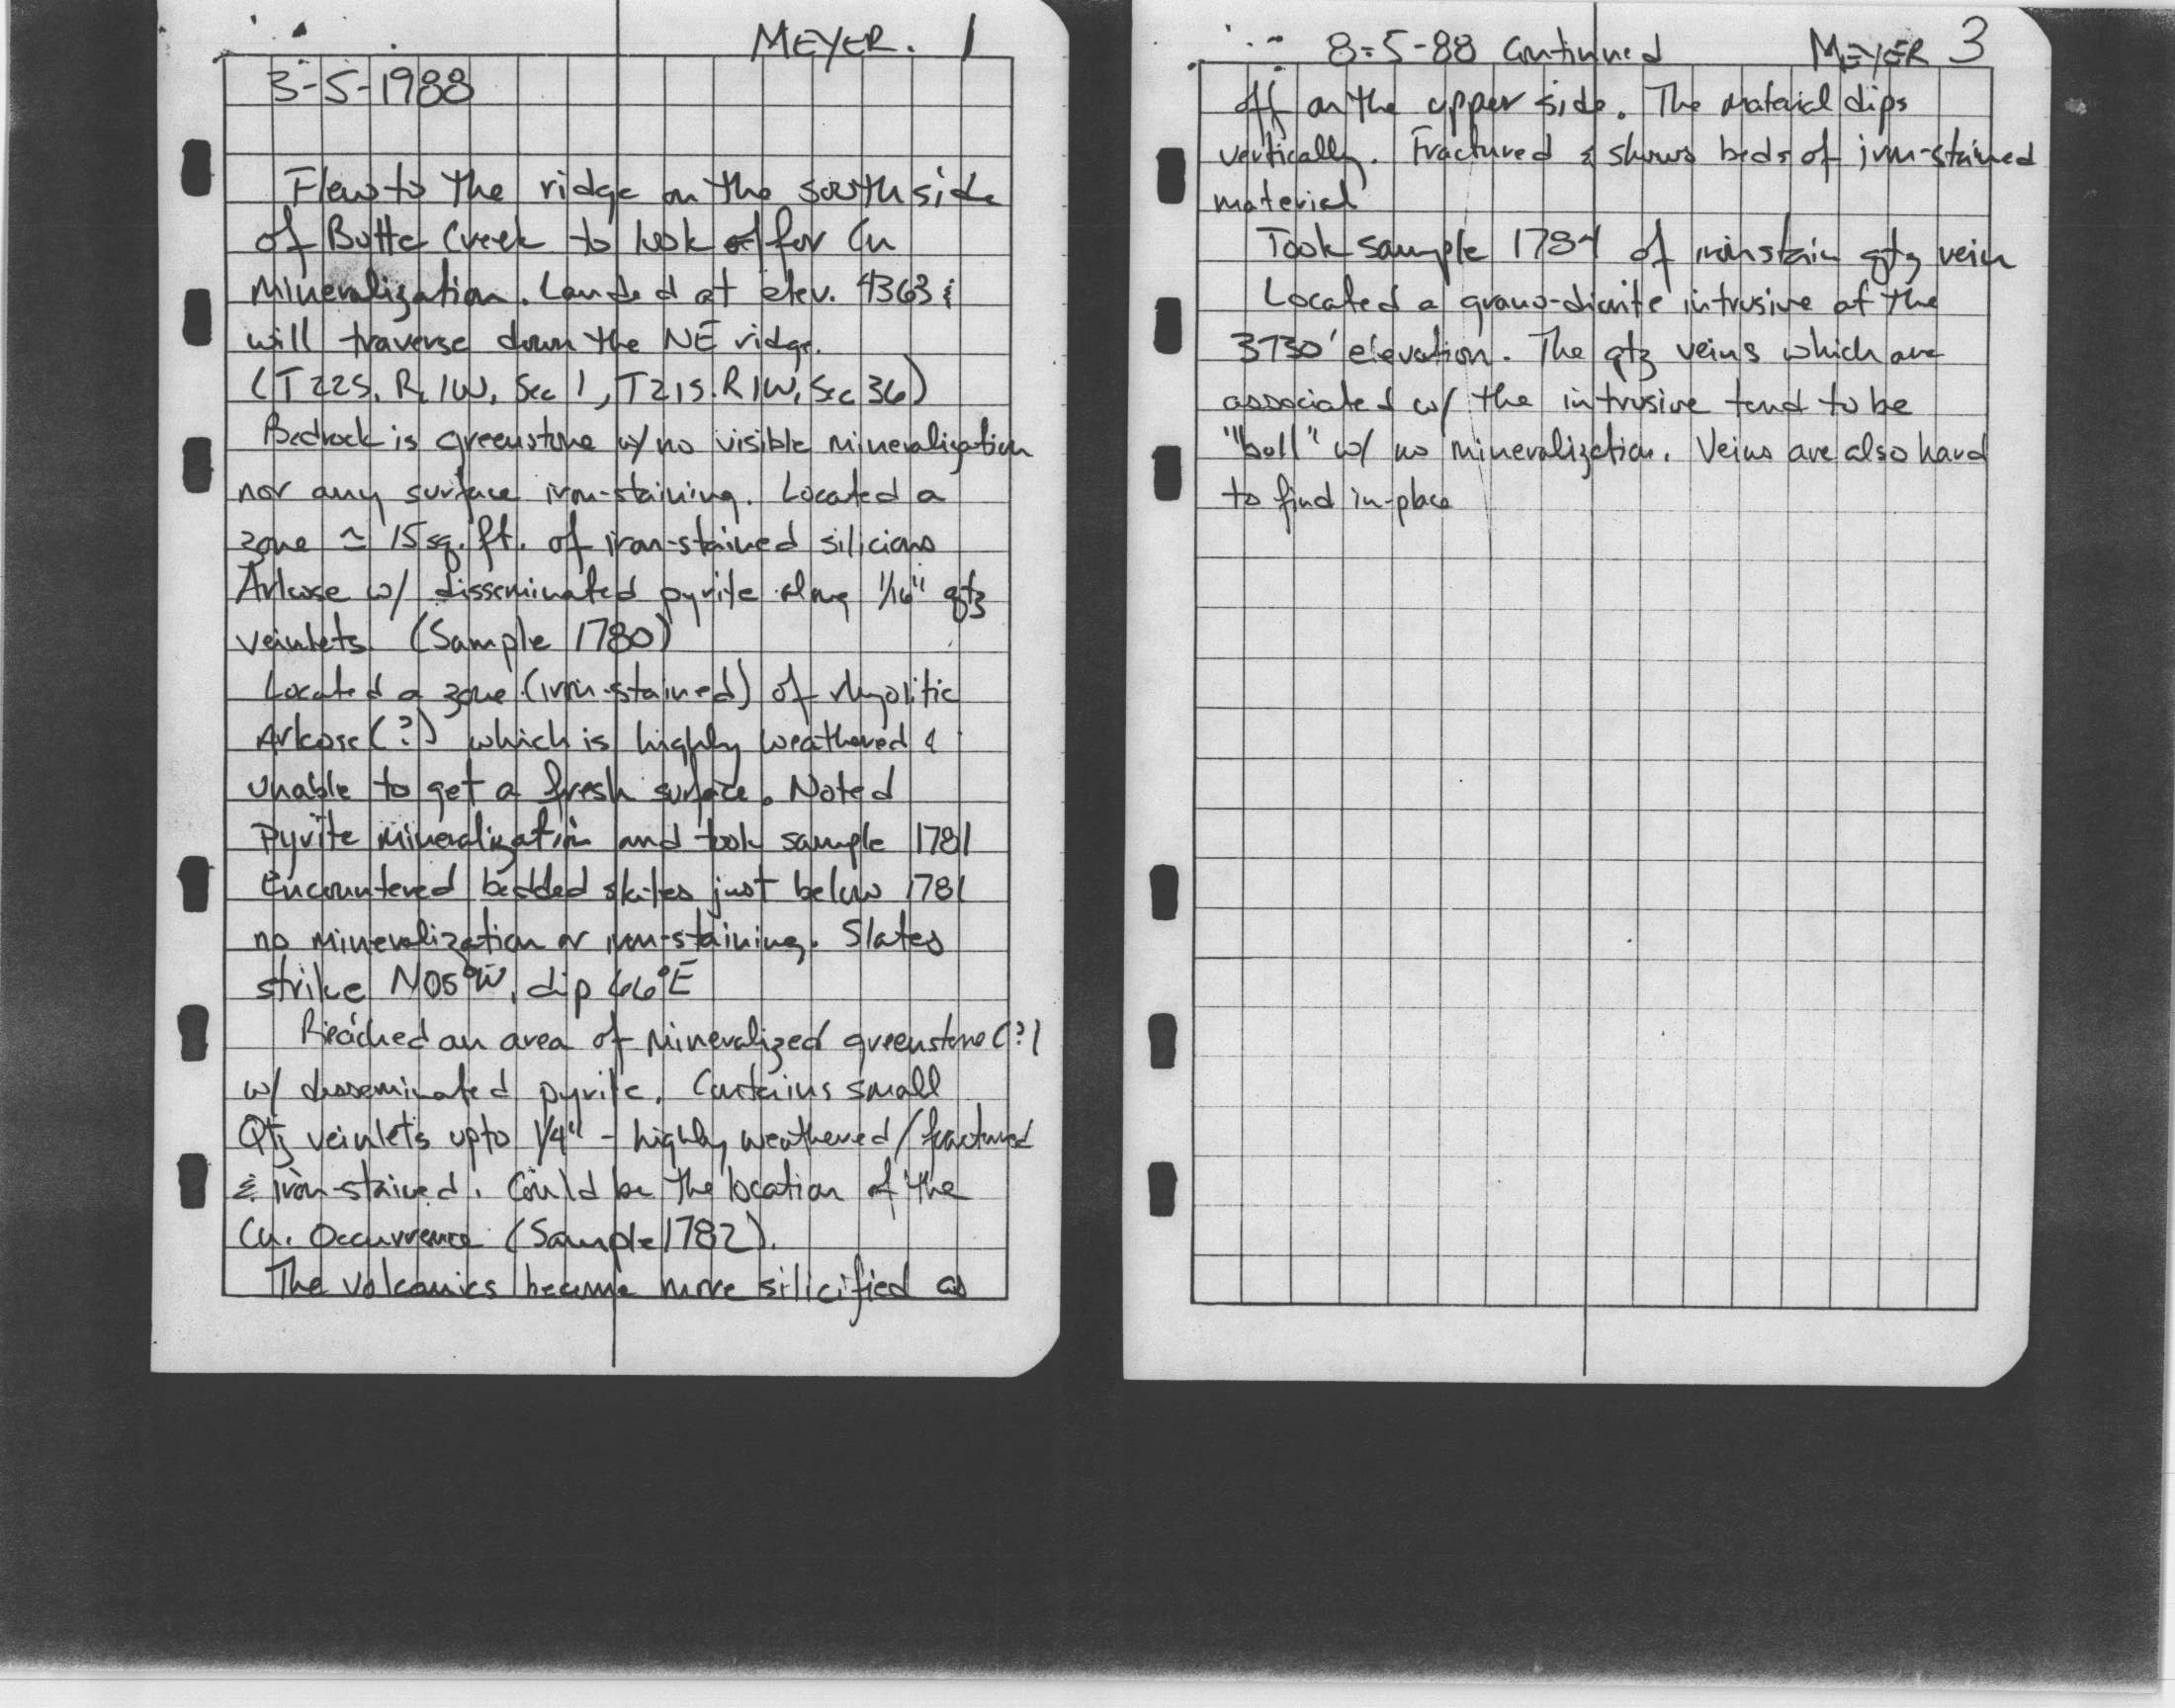 MEYER. 1
3-5-1988
Flew to the ridge on the south side
of Butte Creek to look for Cu
mineralization. Landed at elev. 4363 &
will traverse down the NE ridge.
(T22S, R1W, Sec 1, T21S. R1W, Sec 36)
Bedrock is greenstone w/ no visible mineralization
nor any surface iron-staining. Located a
zone ≃ 15 sq. ft. of iron-stained silicious
Arkose w/ disseminated pyrite along 1/16" qtz
veinlets. (Sample 1780)
Located a zone (iron-stained) of rhyolitic
Arkose(?) which is highly weathered &
unable to get a fresh surface. Noted
Pyrite mineralization and took sample 1781
Encountered bedded slates just below 1781
no mineralization or iron-staining. Slates
strike N05°W, dip 66°E
Reached an area of mineralized greenstone(?)
w/ disseminated pyrite. Contains small
Qtz veinlets upto 1/4" - highly weathered/fractured
& iron-stained. Could be the location of the
Cu. Occurrence (Sample 1782).
The volcanics become more silicified as
8-5-88 Continued MEYER 3
off on the upper side. The material dips
vertically. Fractured & shows beds of iron-stained
material
Took sample 1784 of ironstain qtz vein
Located a grano-diorite intrusive at the
3730' elevation. The qtz veins which are
associated w/ the intrusive tend to be
"bull" w/ no mineralization. Veins are also hard
to find in-place